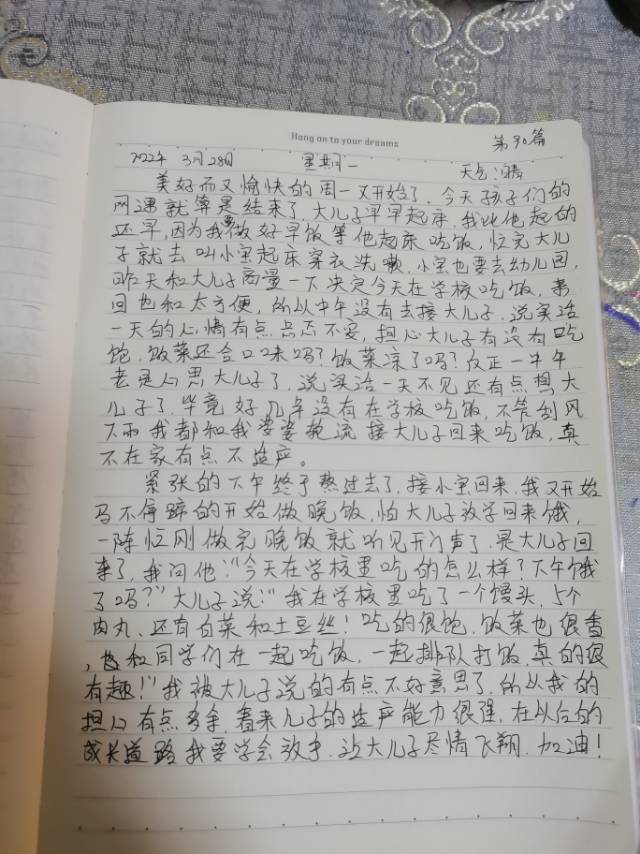 Hang on to your dreams
第30篇
2022年 3月28日 星期一 天气:晴
美好而又愉快的周一又开始了,今天孩子们的
网课就算是结束了,大儿子早早起床,我比他起的
还早,因为我要做好早饭等他起床吃饭,忙完大儿
子就去叫小宝起床穿衣洗嗽,小宝也要去幼儿园,
昨天和大儿子商量一下决定今天在学校吃饭,来
回也和太方便,所以中午没有去接大儿子,说实话
一天的心情有点忐忑不安,担心大儿子有没有吃
饱,饭菜还合口味吗?饭菜凉了吗?反正一中午
老是心思大儿子了,说实话一天不见还有点想大
儿子了,毕竟好几年没有在学校吃饭,不管刮风
下雨我都和我婆婆轮流接大儿子回来吃饭,真
不在家有点不适应。
紧张的下午终于熬过去了,接小宝回来,我又开始
马不停蹄的开始做晚饭,怕大儿子放学回来饿,
一阵忙刚做完晚饭就听见开门声了,是大儿子回
来了,我问他:"今天在学校里吃的怎么样?下午饿
了吗?"大儿子说:"我在学校里吃了一个馒头,5个
肉丸,还有白菜和土豆丝!吃的很饱,饭菜也很香
,和同学们在一起吃饭,一起排队打饭,真的很
有趣!"我被大儿子说的有点不好意思了,所以我的
担心有点多余,看来儿子的适应能力很强,在以后的
成长道路我要学会放手,让大儿子尽情飞翔,加油!